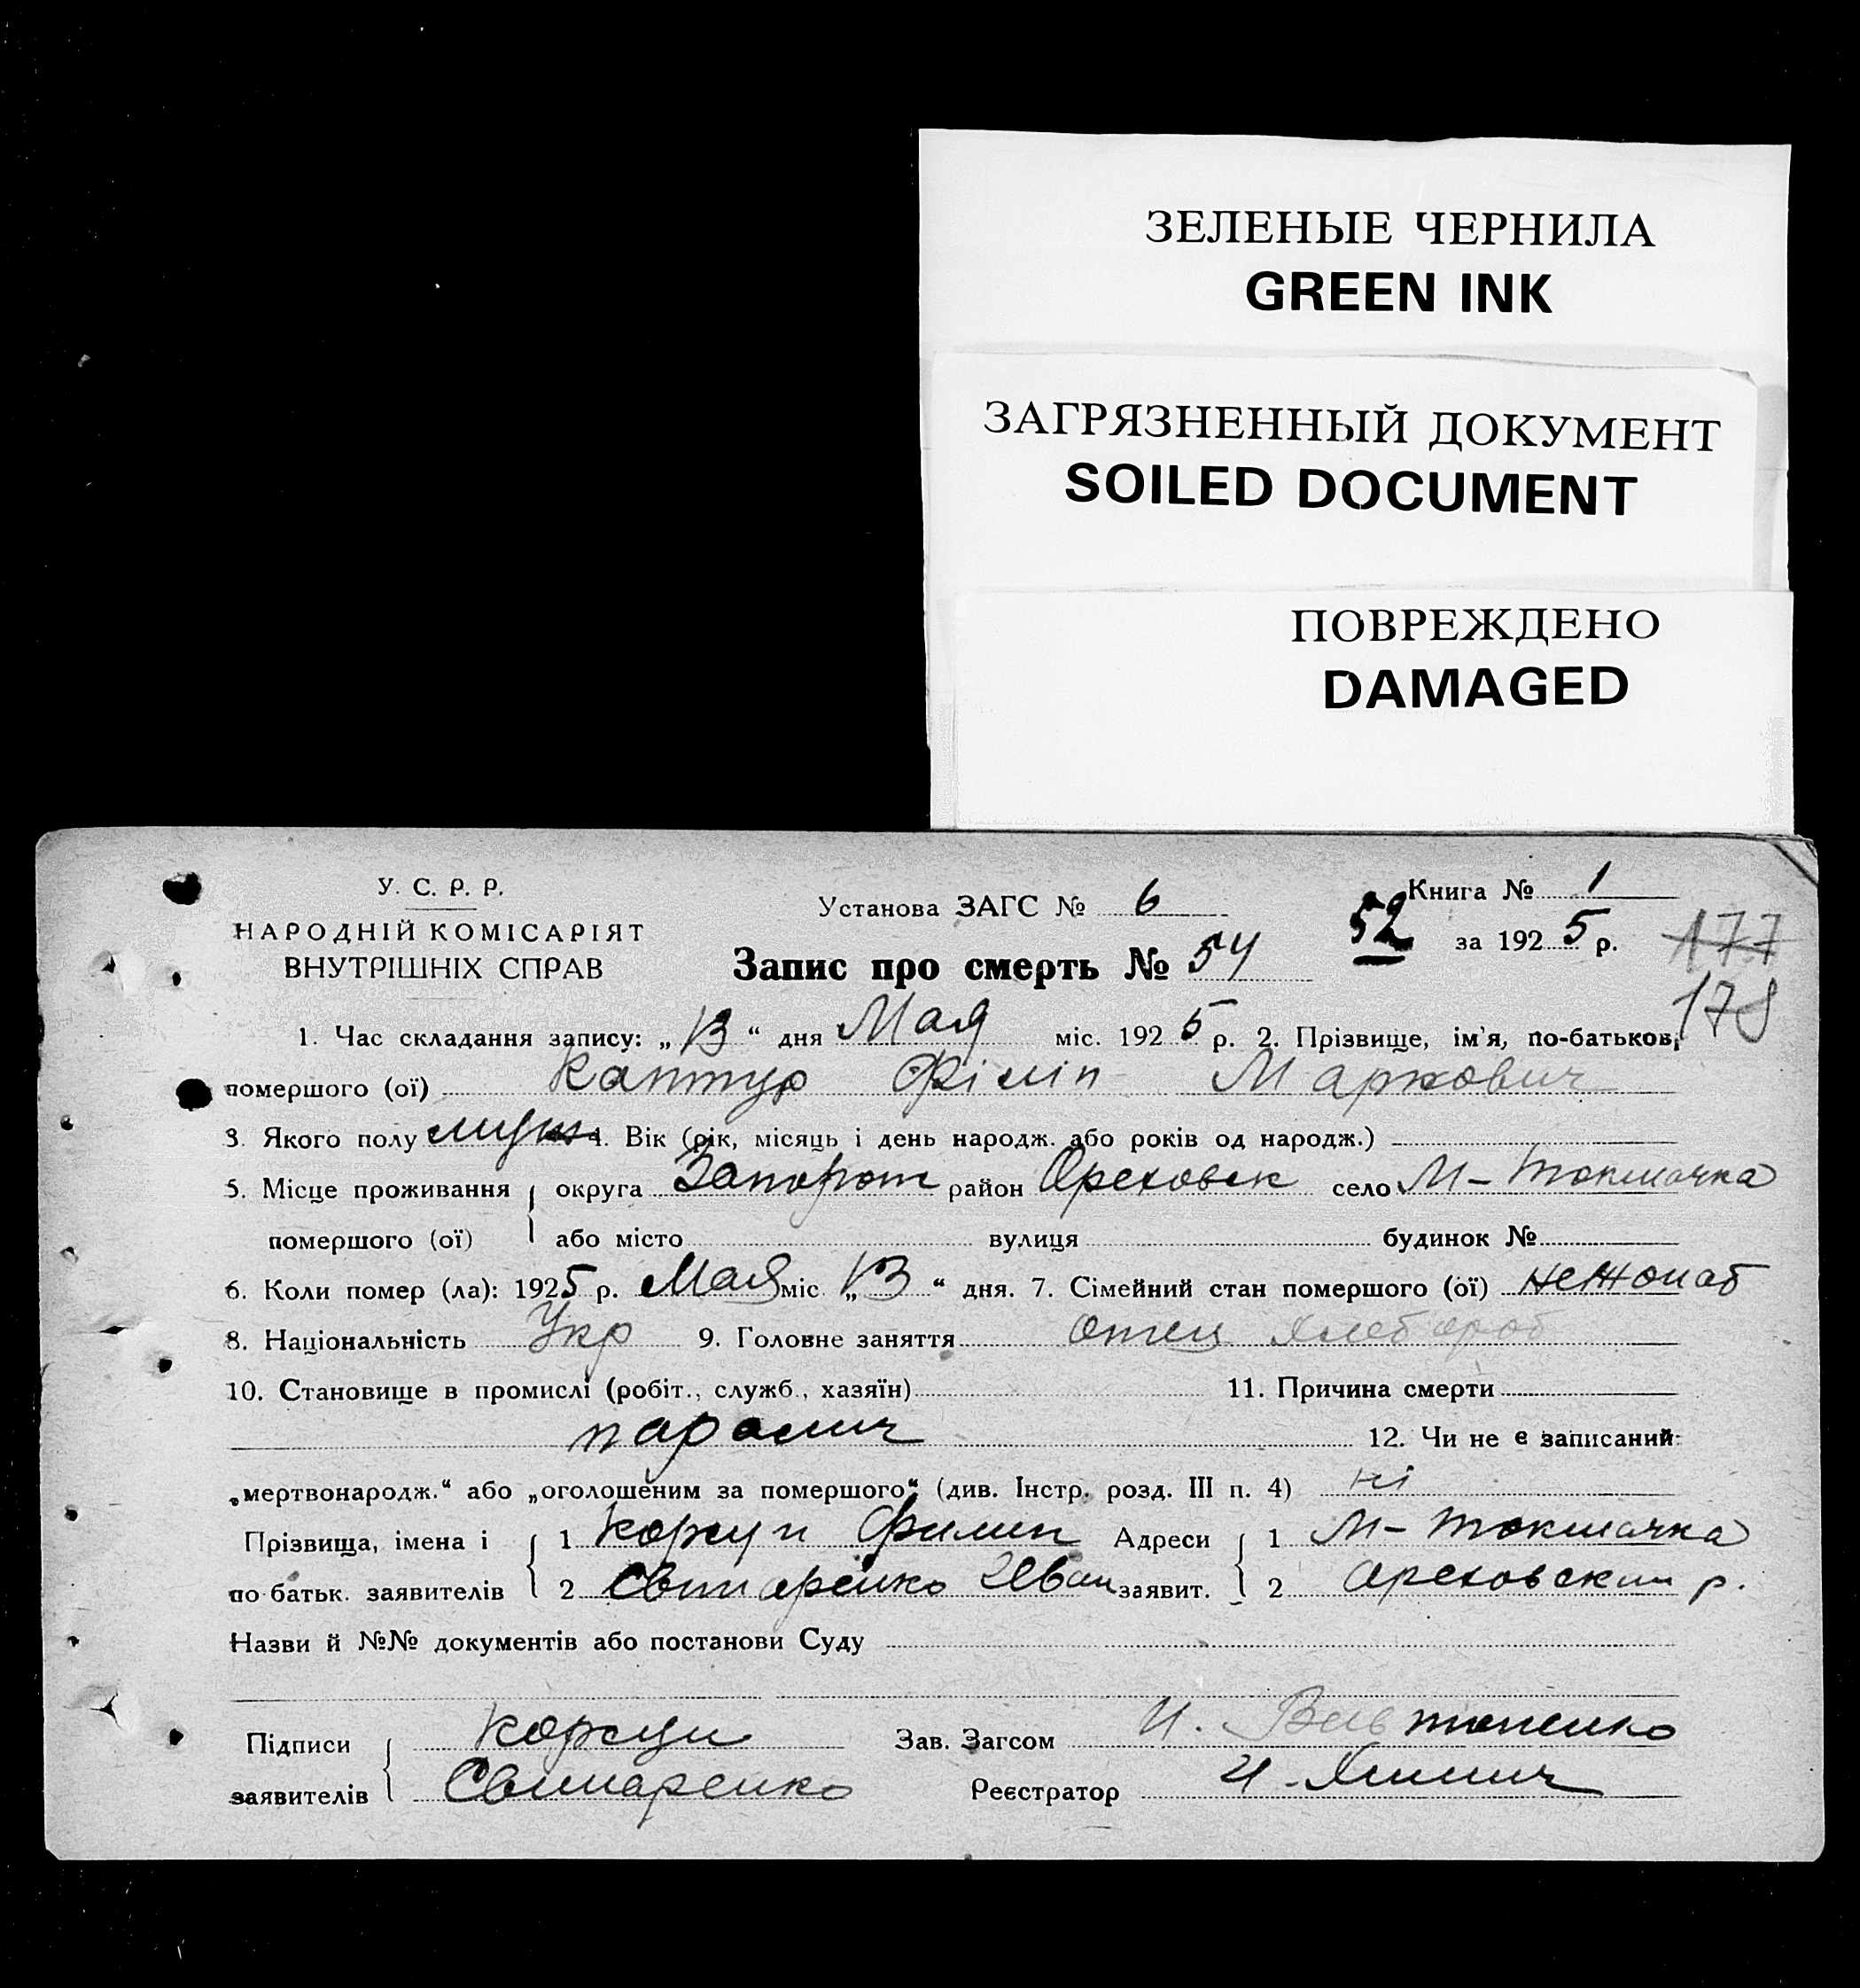 ЗЕЛЕНЫЕ ЧЕРНИЛА
GREEN INK
ЗАГРЯЗНЕННЫЙ ДОКУМЕНТ
SOILED DOCUMENT
ПОВРЕЖДЕНО
DAMAGED
У. С. Р. Р.
НАРОДНІЙ КОМІСАРІЯТ
ВНУТРІШНІХ СПРАВ
Установа ЗАГС № 6
Запис про смерть № 54
52
Книга № 1
за 1925 р.
177
178
1. Час складання запису: „13“ дня Мая міс. 1925 р. 2. Прізвище, ім'я, по-батькові
помершого (ої) Каптур Філіп Маркович
3. Якого полу муж 4. Вік (рік, місяць і день народж. або років од народж.)
5. Місце проживання округа Запорож район Ореховск село М-Токмачка
помершого (ої) або місто вулиця будинок №
6. Коли помер (ла): 1925 р. Мая міс. „13“ дня. 7. Сімейний стан помершого (ої) нежонат
8. Національність Укр 9. Головне заняття отец хлебороб
10. Становище в промислі (робіт., служб., хазяїн) 11. Причина смерти
паралич 12. Чи не є записаний
„мертвонародж.“ або „оголошеним за помершого“ (див. Інстр. розд. III п. 4) ні
Прізвища, імена і 1 Филип Адреси 1 М-Токмачка
по батьк. заявителів 2 Свинаренко Иван заявит. 2 Ореховский р.
Назви й №№ документів або постанови Суду
Підписи Зав. Загсом И.
заявителів Свинаренко Реєстратор И.